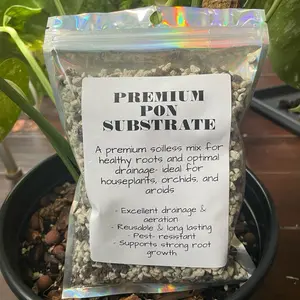 PREMIUM
PON
SUBSTRATE
A premium soilless mix for
healthy roots and optimal
drainage- ideal for
houseplants, orchids, and
aroids
- Excellent drainage &
aeration
- Reusable & long lasting
- Pest- resistant
- Supports strong root
growth